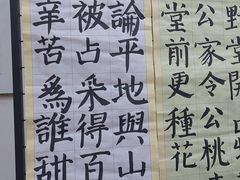 野堂
公家令公桃
堂前更種花
論平地與山
被占采得百
辛苦爲誰甜